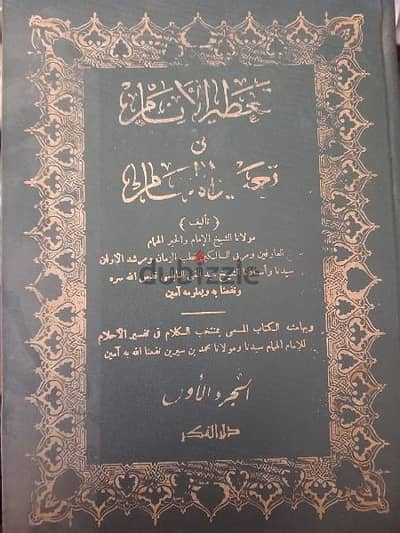 تعطير الأنام
في
تعبير المنام
( تأليف )
مولانا الشيخ الإمام والحبر الهمام
العارفين ومربي السالكين قطب الزمان ومرشد الاوان
سيدنا وأستاذنا الشيخ عبد الغني النابلسي قدس الله سره
ونفعنا به وبعلومه آمين
dubizzle
وبهامشه الكتاب المسمى بمنتخب الكلام في تفسير الأحلام
للإمام الهمام سيدنا ومولانا محمد بن سيرين نفعنا الله به آمين
الجزء الأول
دار الفكر